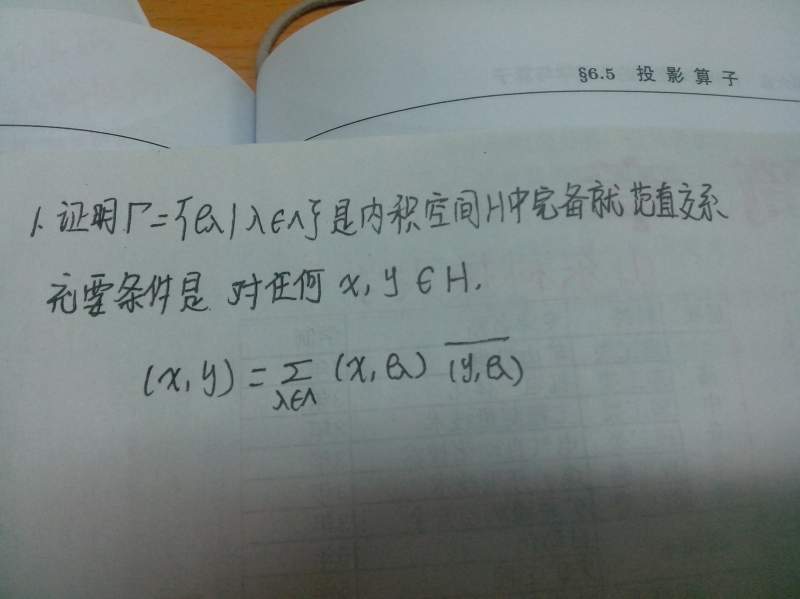 §6.5 投影算子
1. 证明Γ={eλ|λ∈Λ}是内积空间H中完备就范直交系
充要条件是 对任何 x, y ∈ H.
(x, y) = Σ_{λ∈Λ} (x, eλ) \overline{(y, eλ)}